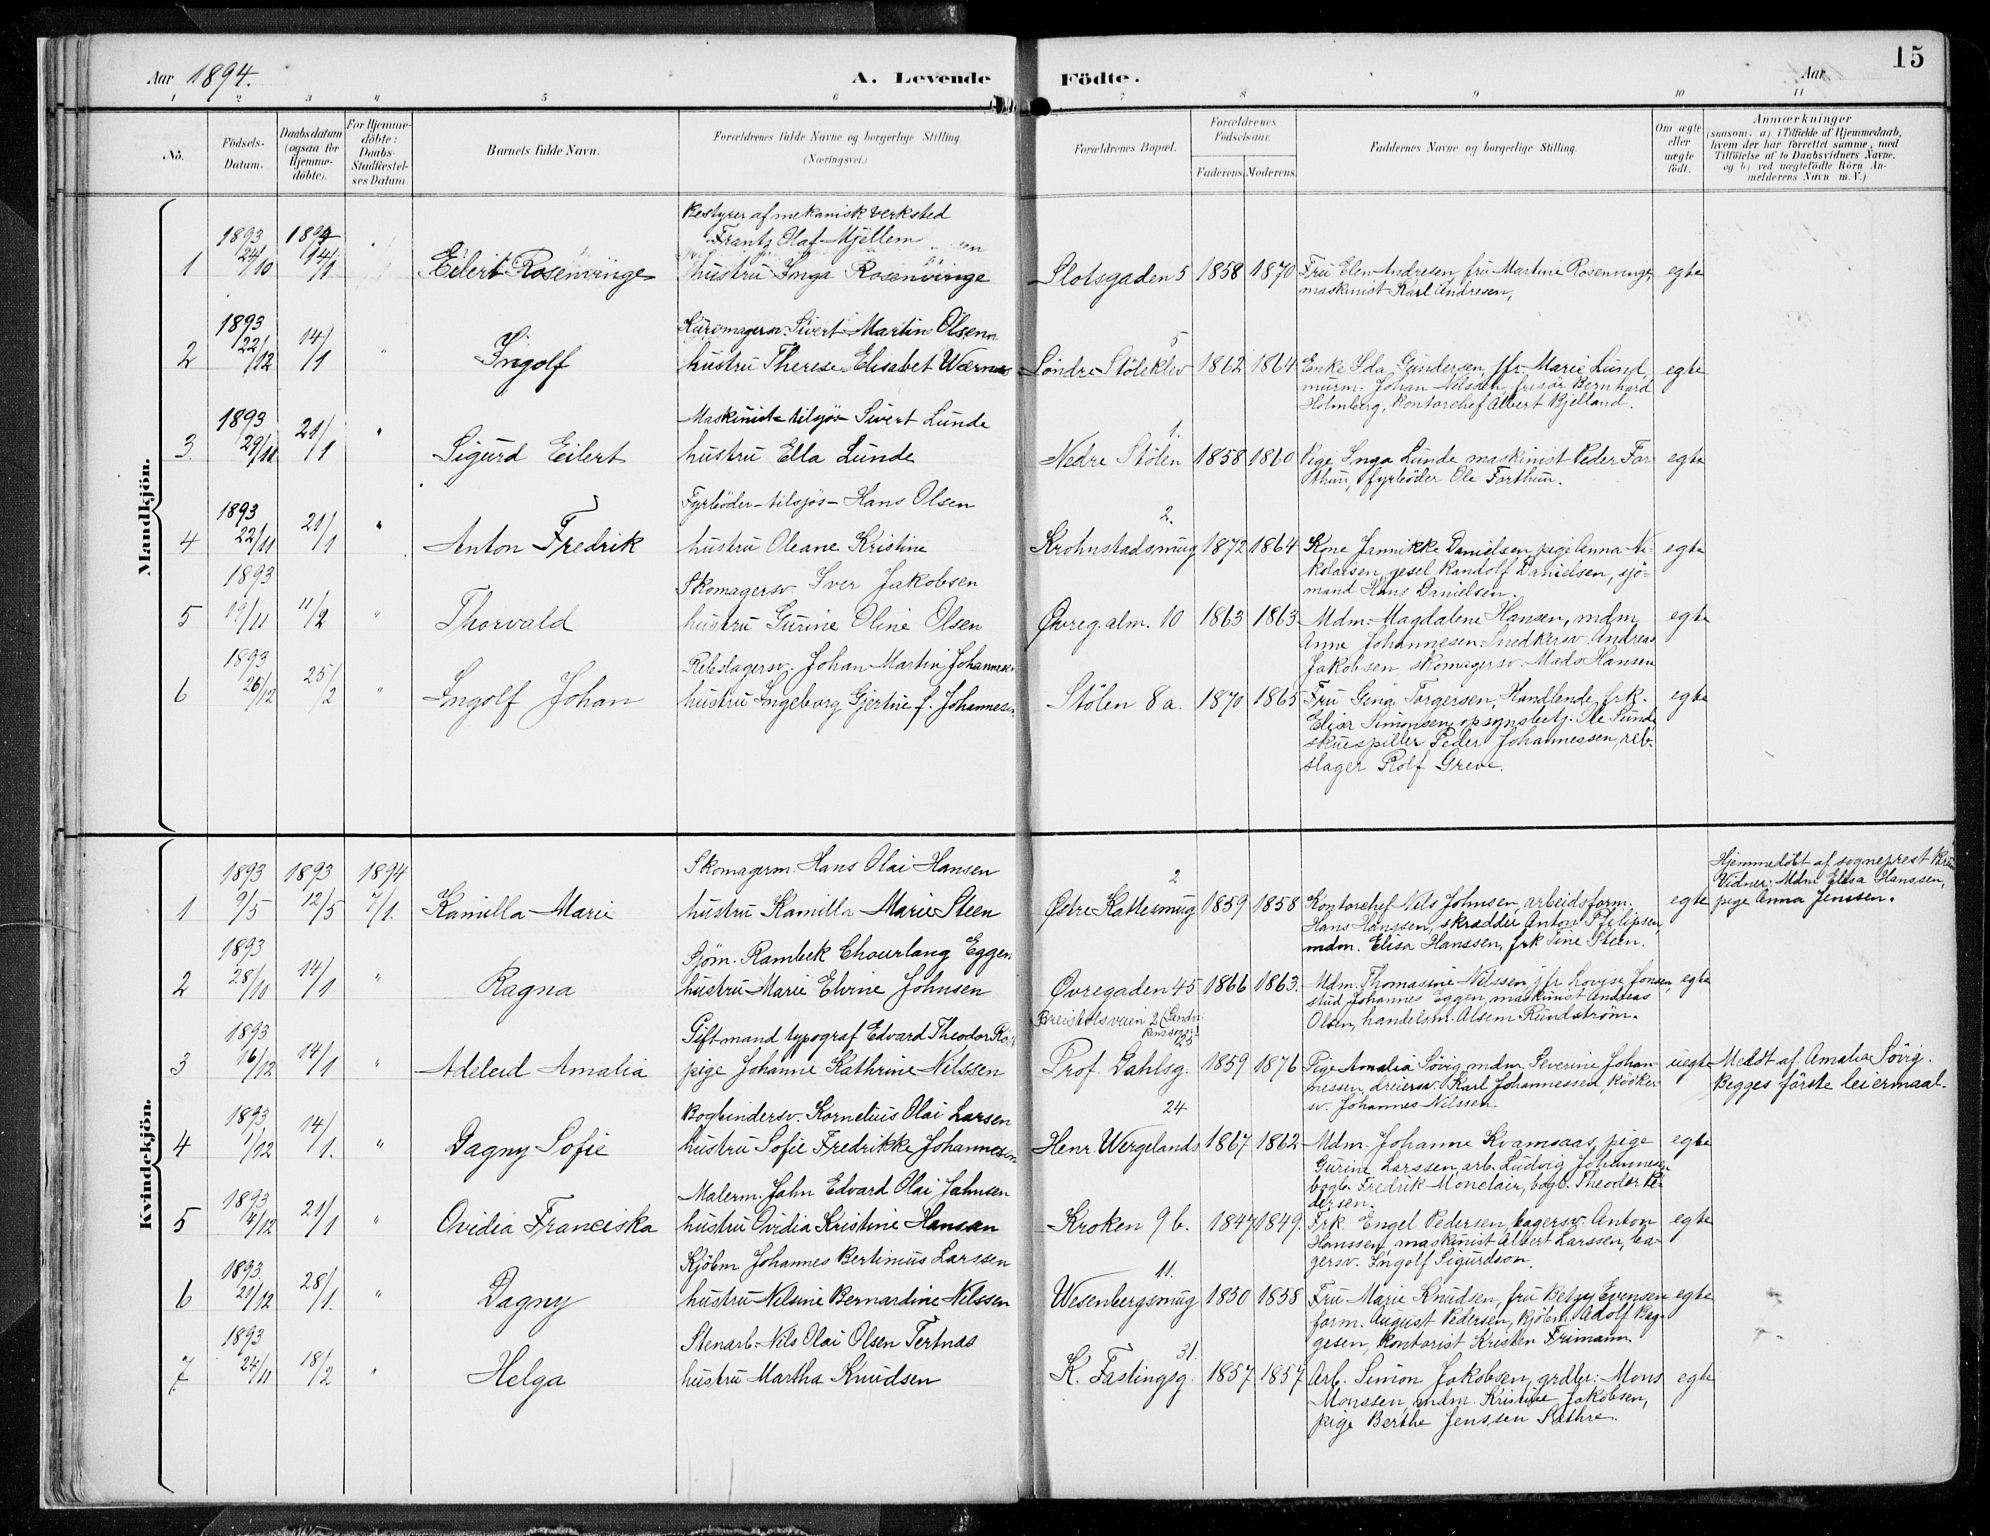 15
Aar 1894.
A. Levende Födte.
Aar
1 2 3 4 5 6 7 8 9 10 11
No.
Födsels-Datum.
Daabsdatum (ogsaa for Hjemme-döbte).
For Hjemme-döbte: Daabs-Stadfæstel-ses Datum
Barnets fulde Navn.
Forældrenes fulde Navne og borgerlige Stilling
(Næringsvei.)
Forældrenes Bopæl.
Forældrenes Födselsaar.
Faderens. Moderens.
Faddernes Navne og borgerlige Stilling.
Om ægte eller uægte födt.
Anmærkninger
(saasom. a) i Tilfælde af Hjemmedaab,
hvem der har forrettet samme, med
Tilföielse af to Daabsvidners Navne,
og b) ved uægtefödte Börn An-
melderens Navn m. V.)
Mandkjön.
Bestyrer af mekanisk verksted
1893 1894 Frantz Olaf Mjellem
1 24/10 14/1 " Eilert Rosenvinge hustru Inga Rosenvinge Slotsgaden 5 1858 1870 Fru Elen Andresen, fru Martine Rosenvinge, egte
maskinist Karl Andresen,
1893 Sivert Martin Olsen 5
2 22/12 14/1 " Ingolf hustru Therese Elisabet Wærnes Söndre Stöleklev 1862 1864 Enke Ida Gundersen, jfr. Marie Lund, egte
murm. Johan Nilssen, frisör Bernhard
Holmberg, kontorchef Albert Bjelland.
1893 Maskinist tilsjös Sivert Lunde 1.
3 29/11 21/1 " Sigurd Eilert hustru Ella Lunde Nedre Stölen 1858 1860 Pige Inga Lunde maskinist Peder For- egte
thun, fyrböder Ole Forthun.
1893 Fyrböder tilsjös Hans Olsen 2.
4 22/11 21/1 " Anton Fredrik hustru Oleane Kristine Krohnstadsmug 1872 1864 Kone Jannikke Danielsen, pige Anna Ni- egte
kolaisen, gesel Randolf Danielsen, sjö-
mand Hans Danielsen.
1893 Skomagersv. Iver Jakobsen
5 19/11 11/2 " Thorvald hustru Gurine Oline Olsen Øvreg.alm. 10 1863 1863 Mdm. Magdalene Hansen, mdm. egte
Anne Johannesen. Snedkersv. Andreas
Jakobsen, skomagersv. Mads Hansen
1893 Rebslagersv. Johan Martin Johannesen
6 26/12 25/2 " Ingolf Johan hustru Ingeborg Gjertine f. Johannesen Stölen 8 a. 1870 1865 Fru Gina Torgersen, Handlende, frk. egte
Elisa Simonsen, opsynsbetj. Ole Sunde
skuespiller Peder Johannessen, reb-
slager Rolf Greve.
Kvindekjön.
1893 1893 1894 Skomagerm. Hans Olai Hansen 2
Hjemmedöbt af sogneprest
Vidner: Mdm. Elisa Hanssen,
1 9/5 12/5 7/1. Kamilla Marie hustru Kamilla Marie Steen Østre Kattesmug 1859 1858 Kontorchef Nils Johnsen, arbeidsform. egte pige Anna Jenssen.
Hans Hanssen, skrædder Anton Filipsen,
mdm. Elisa Hanssen, frk Sine Steen.
1893 Sjöm. Rambek Chourlang Eggen
2 28/10 14/1 " Ragna hustru Marie Elvine Johnsen Øvregaden 45 1866 1863. Mdm. Thomasine Nilssen, jfr. Lovise Jonsen, egte
stud Johannes Eggen, maskinist Andreas
Olsen, handelsm. Alsem Rundström.
Breistolsveien 2
1893 Gift mand typograf Edvard Theodor 25
3 16/12 14/1 " Adeleid Amalia pige Johanne Kathrine Nilssen Prof. Dahlsg. 1859 1876 Pige Amalia Sövig, mdm. Severine Johan- uegte Meldt af Amalia Sövig.
nessen, dreiersv. Karl Johannessen, bödker- Begges förste leiermaal.
sv. Johannes Nilssen.
1893 Bogbindersv. Kornelius Olai Larsen 24
4 1/12 14/1. " Dagny Sofie hustru Sofie Fredrikke Johannesen Henr. Wergelands 1867 1862 Mdm. Johanne Kvamsaas, pige egte
Gurine Larssen, arb. Ludvig Johannesen,
bogb. Fredrik Monclair, bogb. Theodor Pe-
dersen.
1893 Malerm. John Edvard Olai Johnsen
5 4/12 21/1 " Ovidia Franciska hustru Ovidia Kristine Hansen Kroken 9 b. 1847 1849. Frk Engel Pedersen, bagersv. Anton egte
Hanssen, maskinist Albert Larssen, ba-
gersv. Ingolf Sigurdson.
1893. Kjöbm. Johannes Bertinius Larssen 11.
6 21/12 28/1. " Dagny hustru Nilsine Bernardine Nilssen Wesenbergsmug 1850 1858 Fru Marie Knudsen, fru Betzy Evensen egte
form. August Pedersen, kjöbm. Adolf Bag-
gesen, kontorist Kristen Frimann.
1893 Stenarb. Nils Olai Olsen Tertnæs 31.
7 24/11 18/2 " Helga hustru Martha Knudsen K. Fastingsg. 1857 1857 Arb. Simon Jakobsen, grdbr. Mons egte
Monssen, mdm. Kristine Jakobsen,
pige Berthe Jenssen Sæthre.